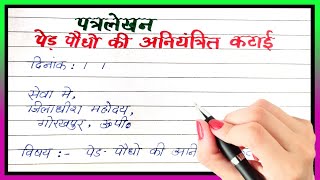 पत्रलेखन
पेड़ पौधो की अनियंत्रित कटाई
दिनांक : । ।
सेवा में,
जिलाधीश महोदय,
गोरखपुर, ऊ०पी०
विषय :- पेड़- पौधो की अनि